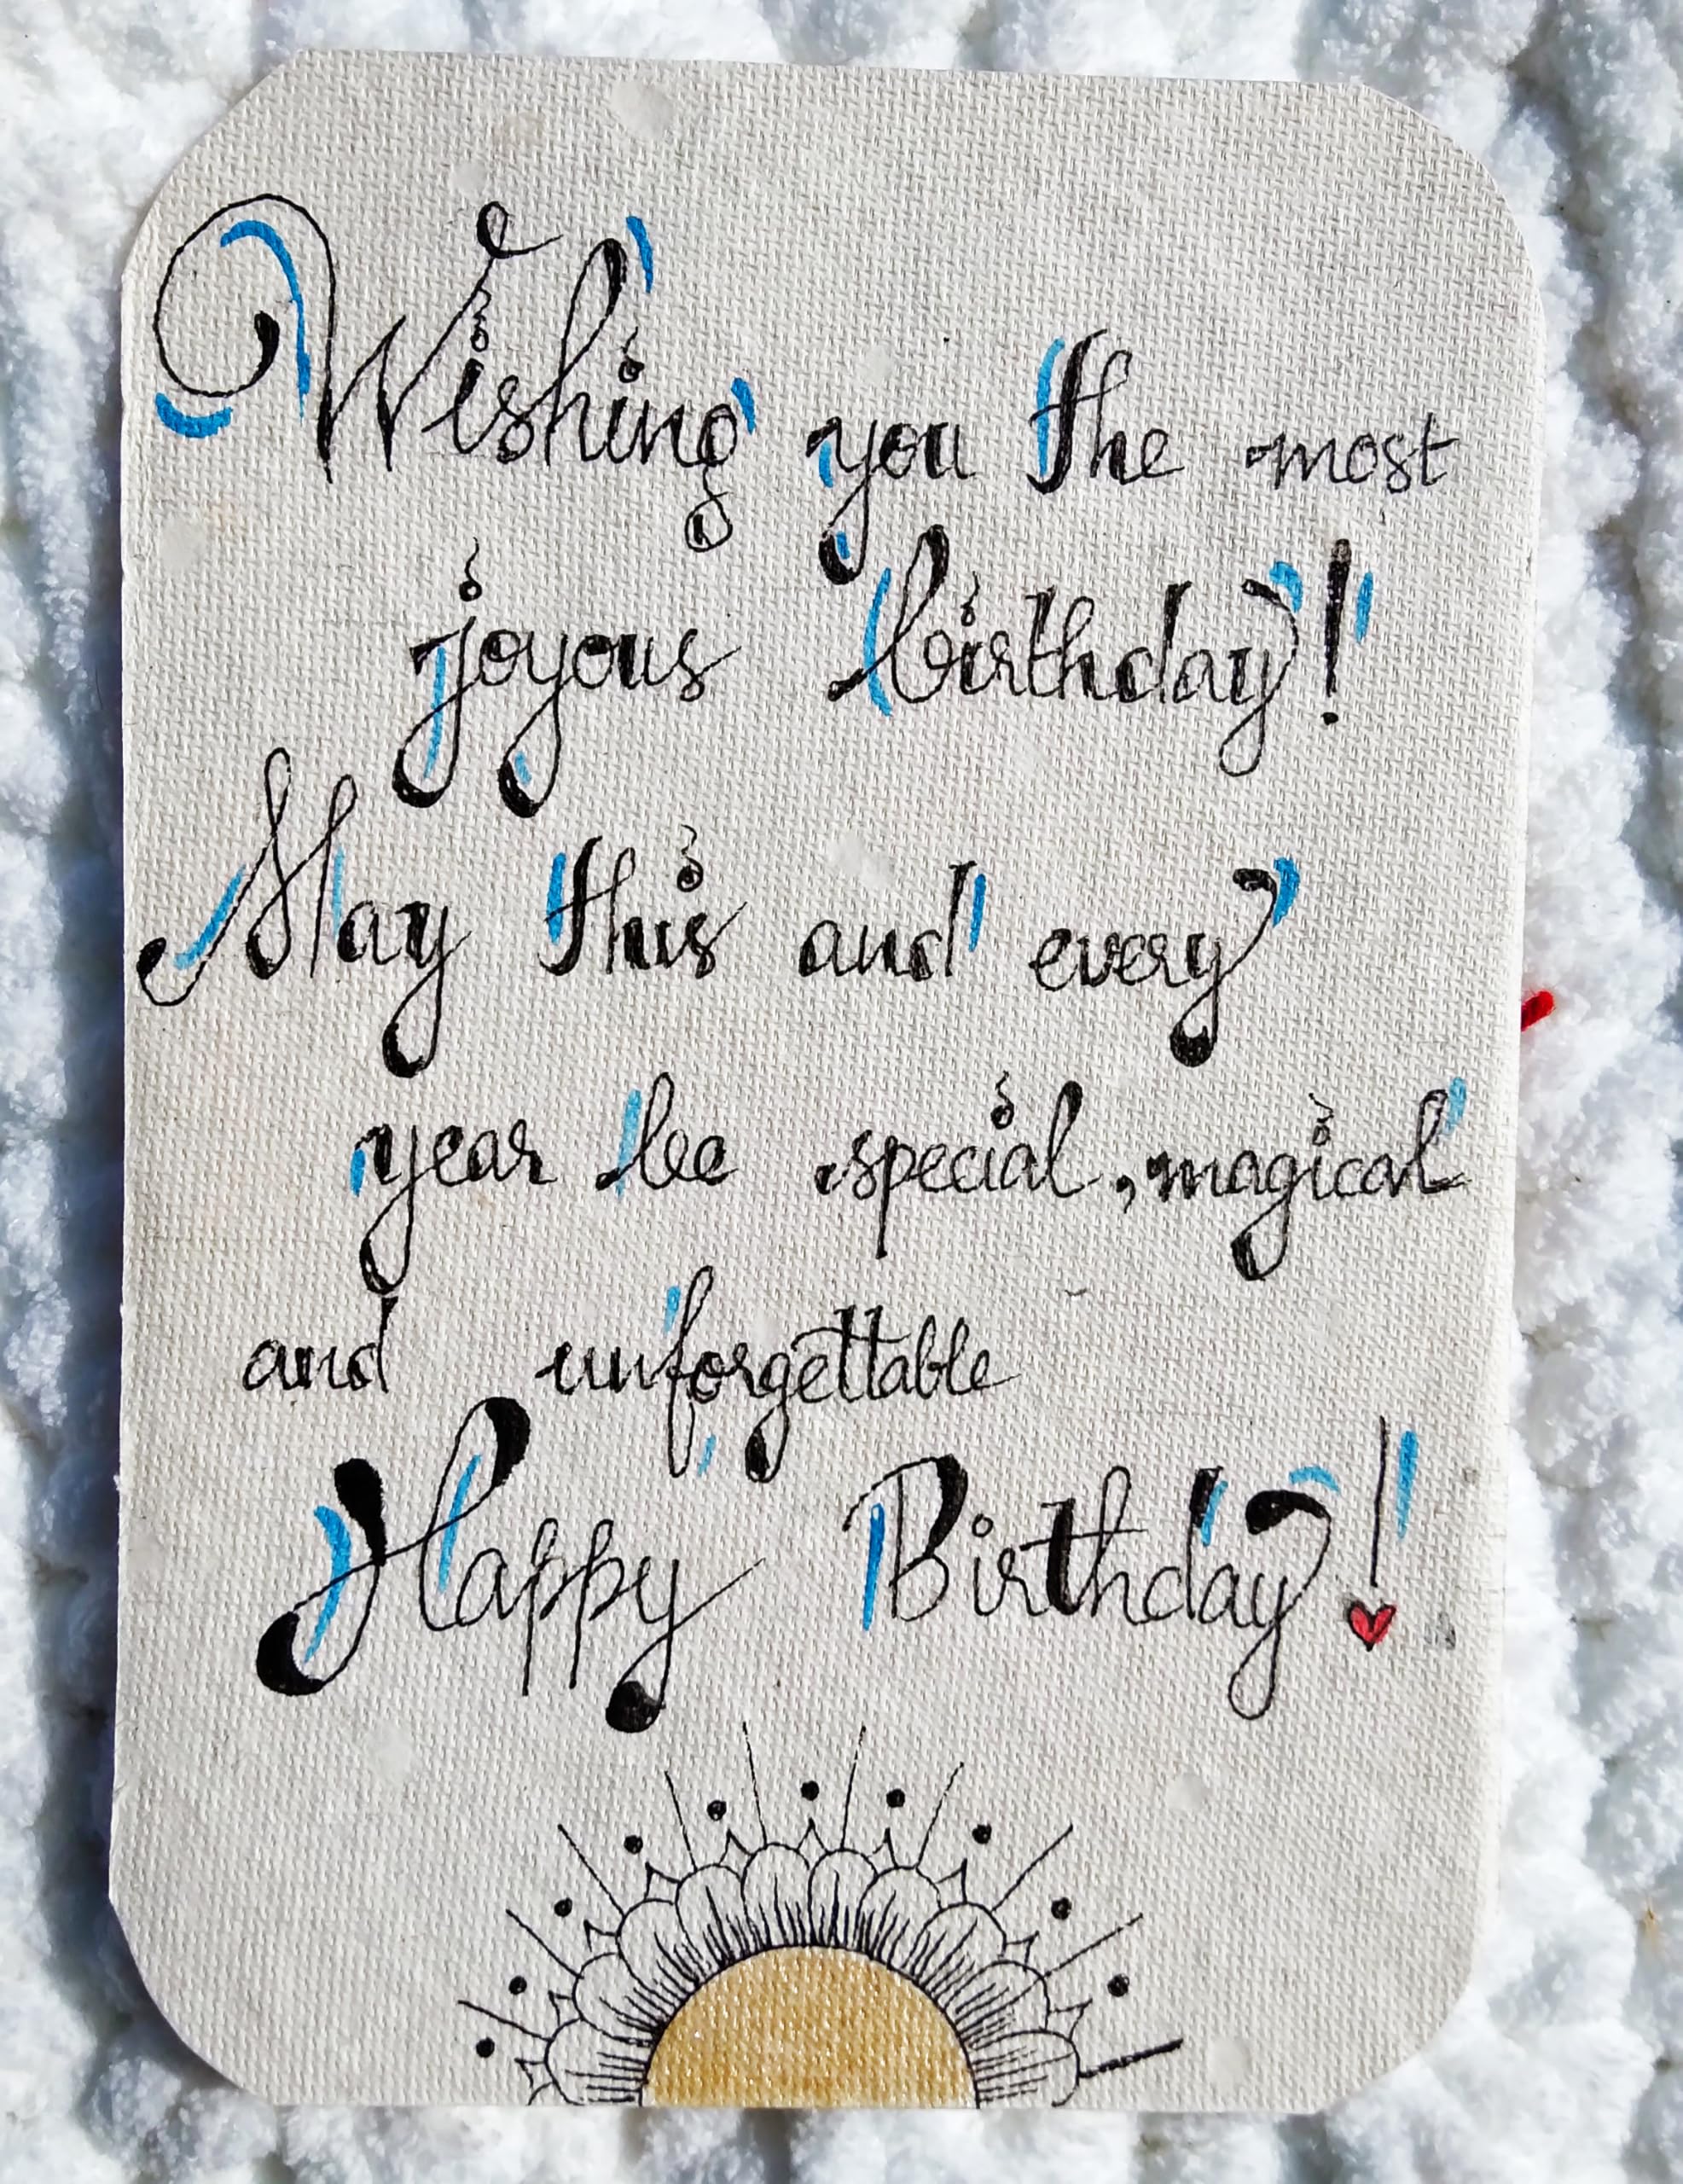 Wishing you the most
joyous birthday!
May this and every
year be special, magical
and unforgettable
Happy Birthday!